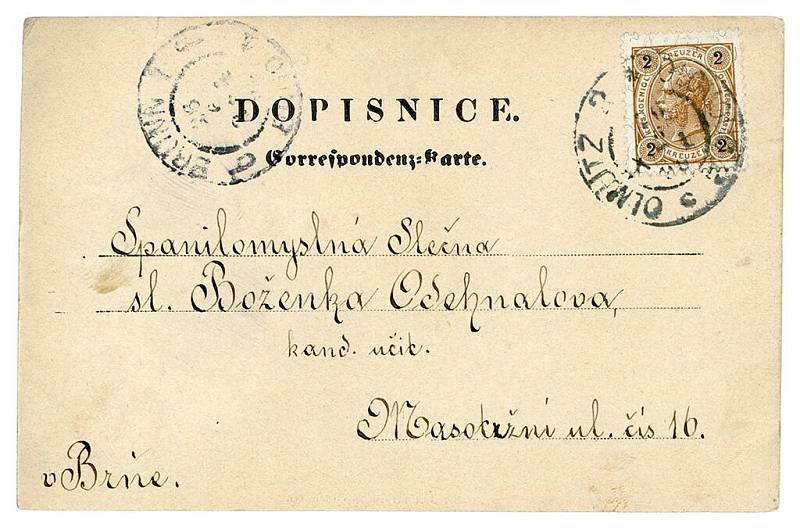 DOPISNICE.
Correspondenz-Karte.
2 KREUZER 2
2 KREUZER 2
OLMÜTZ 2
BRÜNN
Spanilomyslná Slečna
sl. Boženka Odehnalova,
kand. učit.
Masotržní ul. čís 16.
v Brňe.